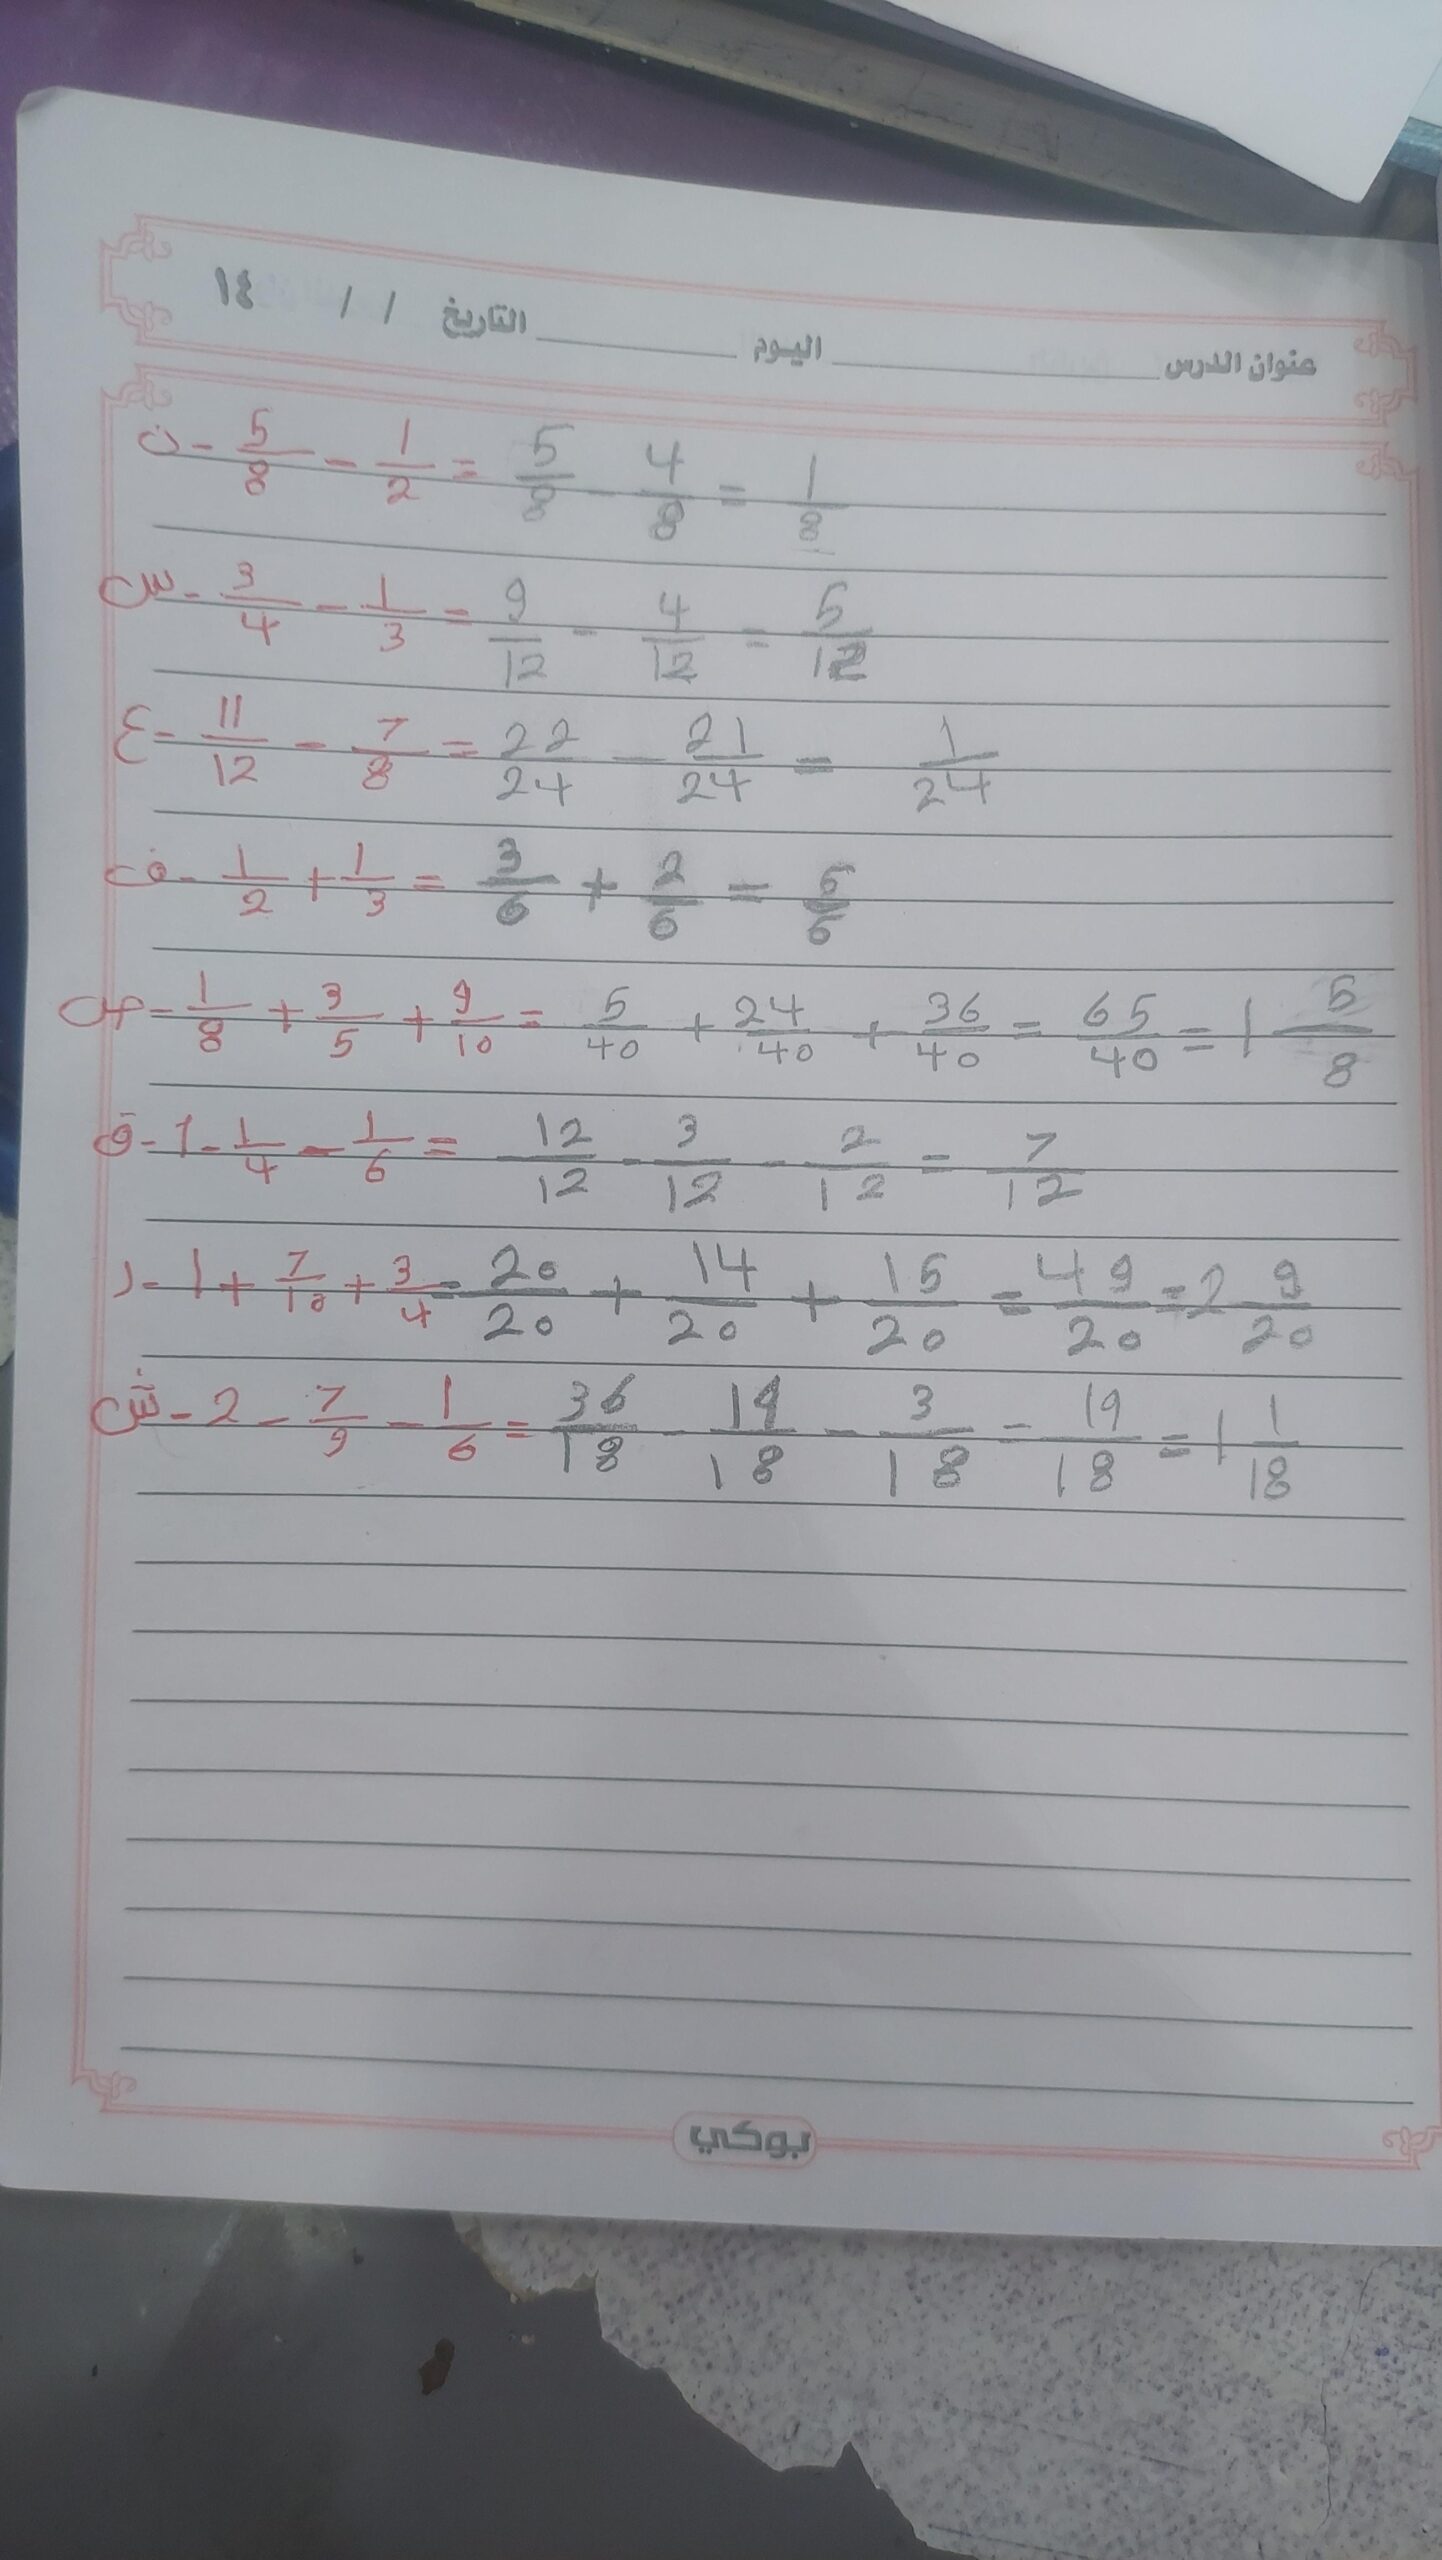 عنوان الدرس اليوم التاريخ / / ١٤
ن - 5/8 - 1/2 = 5/8 - 4/8 = 1/8
س - 3/4 - 1/3 = 9/12 - 4/12 = 5/12
ع - 11/12 - 7/8 = 22/24 - 21/24 = 1/24
ف - 1/2 + 1/3 = 3/6 + 2/6 = 5/6
ص - 1/8 + 3/5 + 9/10 = 5/40 + 24/40 + 36/40 = 65/40 = 1 5/8
ق - 1 - 1/4 - 1/6 = 12/12 - 3/12 - 2/12 = 7/12
ر - 1 + 7/10 + 3/4 = 20/20 + 14/20 + 15/20 = 49/20 = 2 9/20
ش - 2 - 7/9 - 1/6 = 36/18 - 14/18 - 3/18 = 19/18 = 1 1/18
بوكي